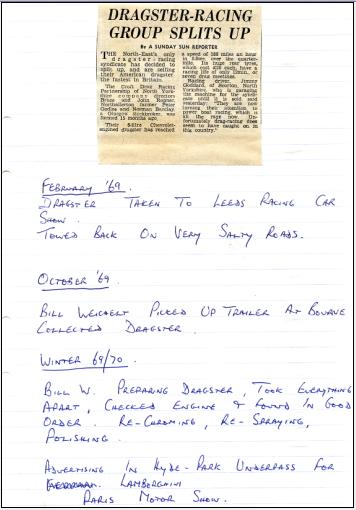 DRAGSTER-RACING
GROUP SPLITS UP
By A SUNDAY SUN REPORTER
THE North-East's only
dragster-racing
syndicate has decided to
split up, and are selling
their American dragster
the fastest in Britain.
The Croft Drag Racing
Partnership of North York-
shire company directors
Bruce and John Ropner,
Northallerton farmer Peter
and Norman Barclay,
a Glasgow stockbroker, was
formed 15 months ago.
Their Chevrolet-
engined dragster has reached
a speed of 168 miles an hour
in over the quarter-
mile. Its huge rear tyres,
which cost each have a
racing life of only 12min., or
seven drag meetings.
Racing driver, Jimmy
Goddard, of Scorton, North
Yorkshire, who is garaging
the machine for the syndi-
cate until it is sold said
yesterday: "They are now
turning their attention to
power boat racing, which is
all the rage now. Un-
fortunately drag-racing does
seem to have caught on in
this country."
FEBRUARY '69.
DRAGSTER TAKEN TO LEEDS RACING CAR
SHOW.
TOWED BACK ON VERY SALTY ROADS.
OCTOBER '69
BILL WEICHELT PICKED UP TRAILER AT BOURNE
COLLECTED DRAGSTER
WINTER 69/70.
BILL W. PREPARING DRAGSTER, TOOK EVERYTHING
APART, CHECKED ENGINE & FOUND IN GOOD
ORDER. RE-CHROMING, RE-SPRAYING,
POLISHING.
ADVERTISING IN HYDE-PARK UNDERPASS FOR
LAMBORGHINI
PARIS MOTOR SHOW.